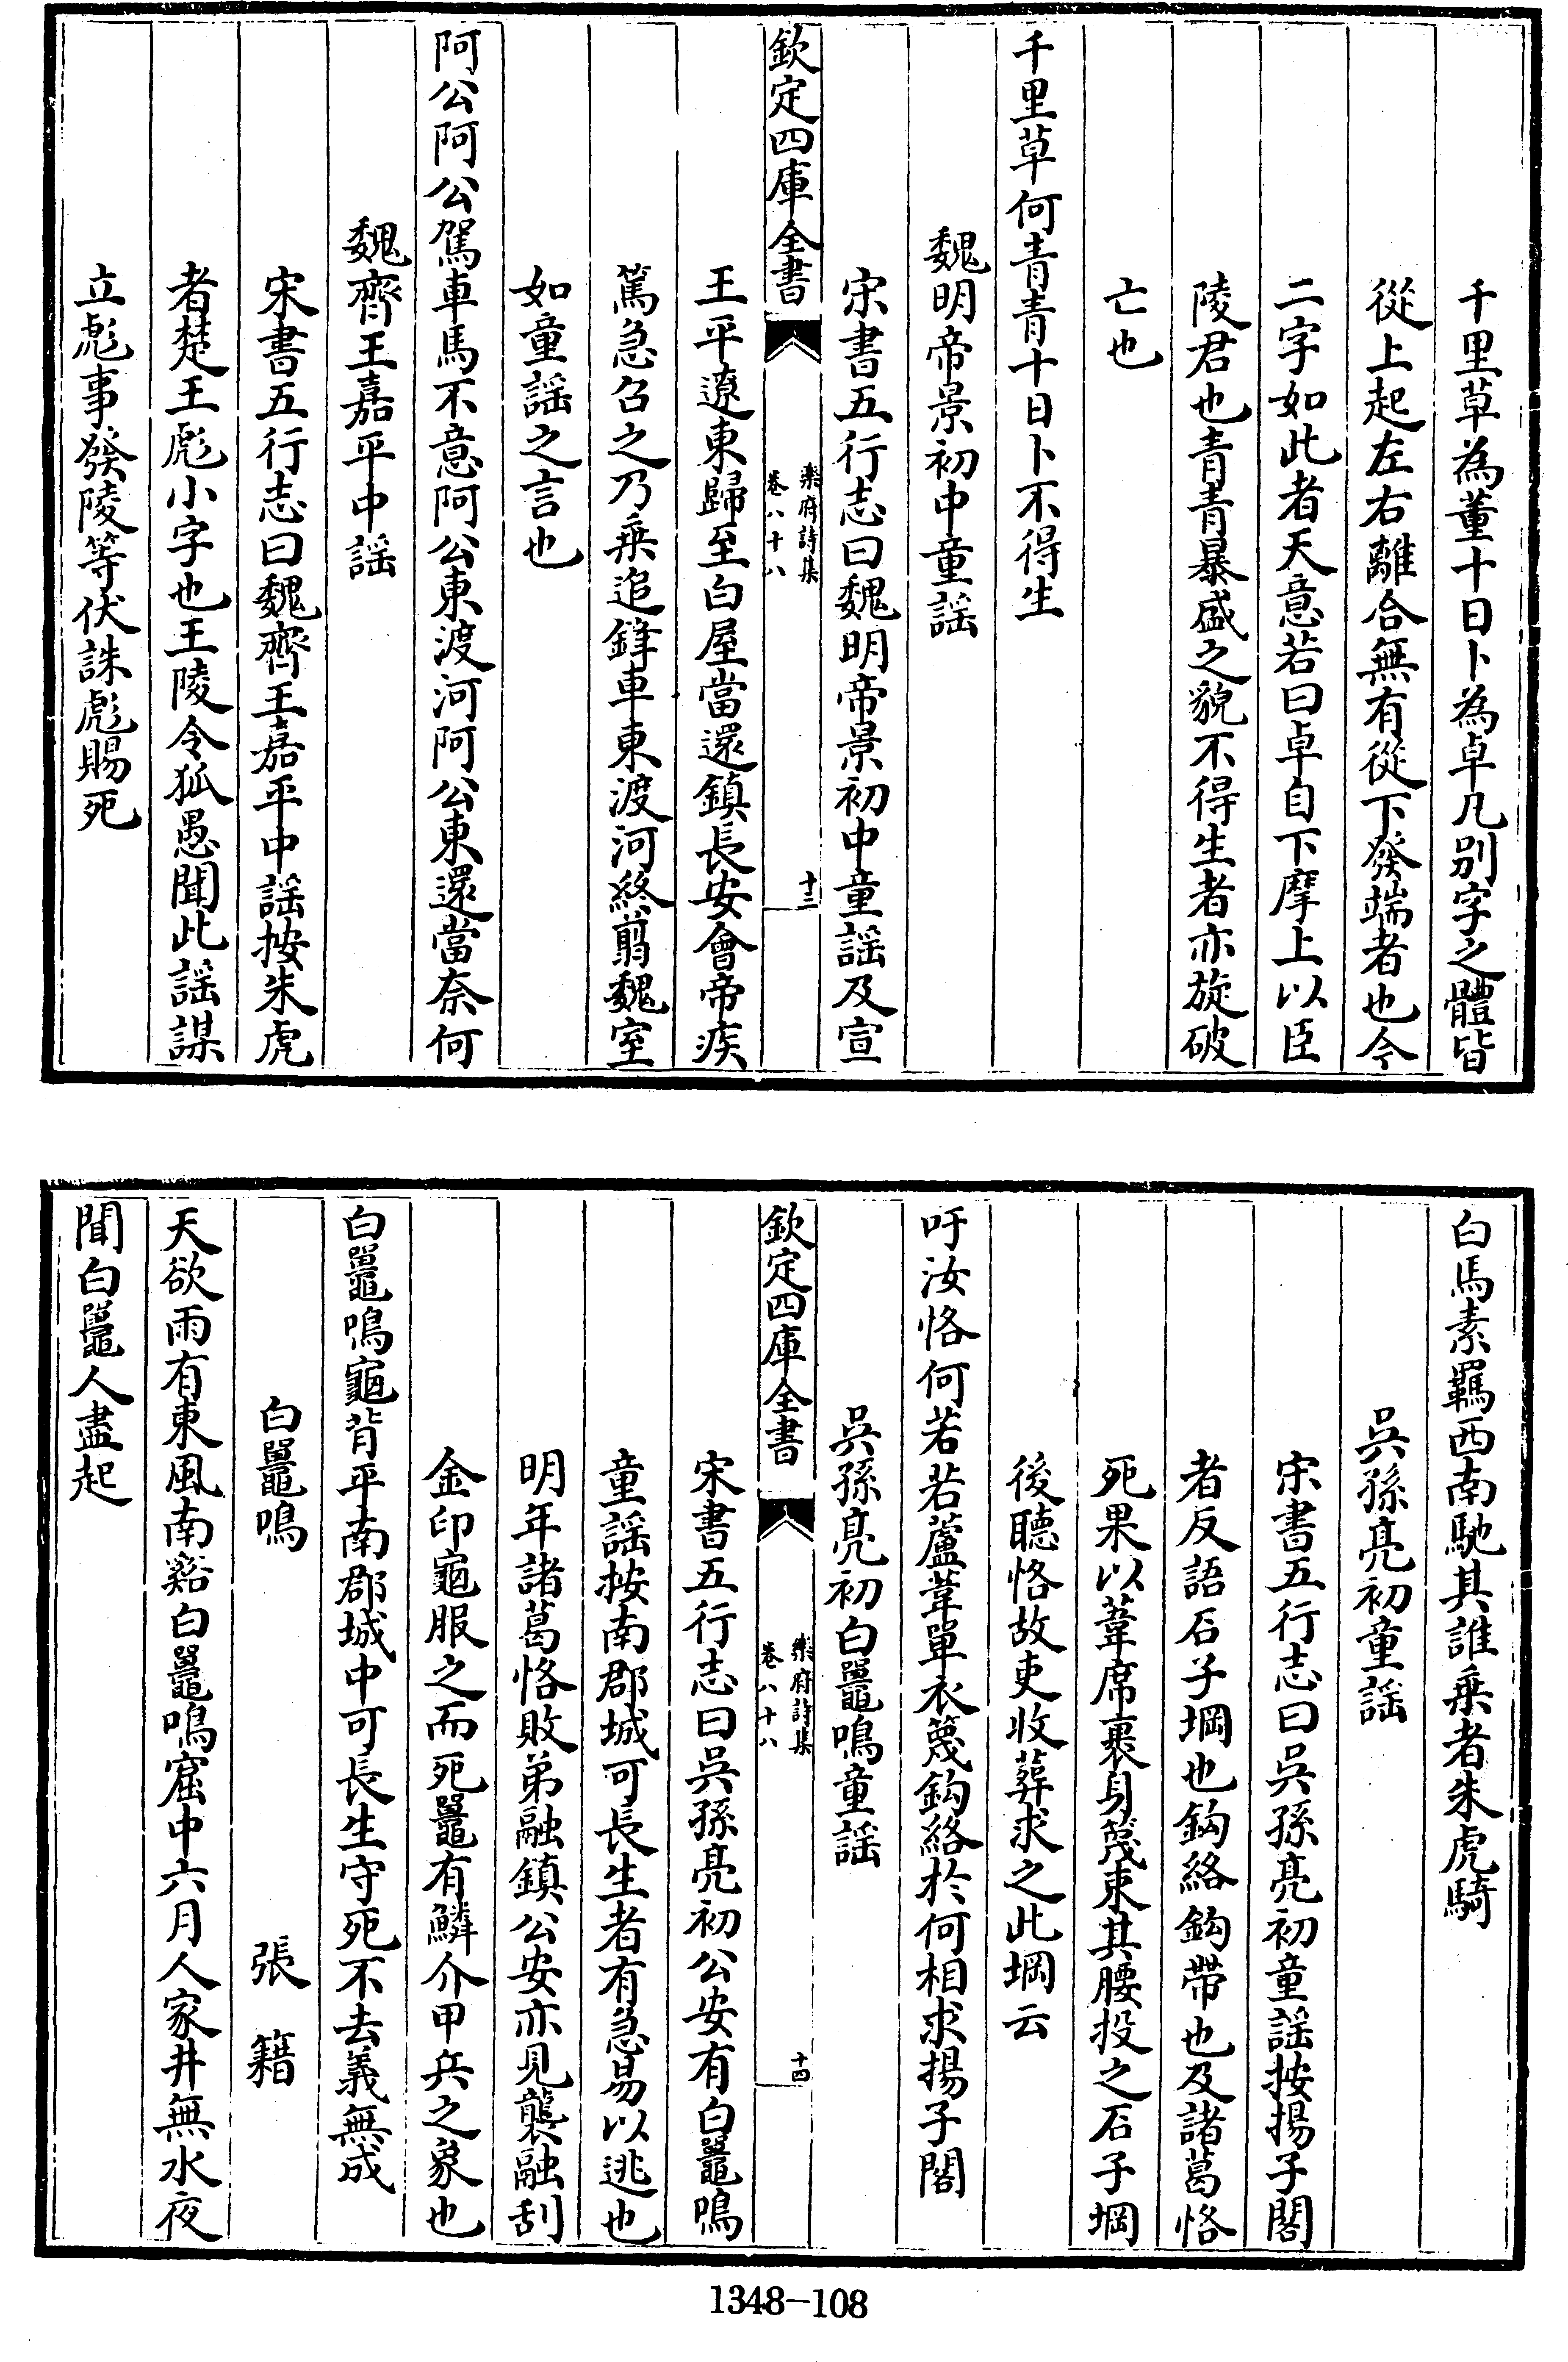 千里草為董十日卜為卓凡别字之體皆
從上起左右離合無有從下發端者也今
二字如此者天意若曰卓自下摩上以臣
陵君也青青暴盛之貌不得生者亦旋破
亡也
千里草何青青十日卜不得生
魏明帝景初中童謡
宋書五行志曰魏明帝景初中童謡及宣
欽定四庫全書
樂府詩集
卷八十八
十三
王平遼東歸至白屋當還鎮長安會帝疾
篤急召之乃乗追鋒車東渡河終翦魏室
如童謡之言也
阿公阿公駕車馬不意阿公東渡河阿公東還當奈何
魏齊王嘉平中謡
宋書五行志曰魏齊王嘉平中謡按朱虎
者楚王彪小字也王陵令狐愚聞此謡謀
立彪事發陵等伏誅彪賜死
白馬素羈西南馳其誰乗者朱虎騎
吳孫亮初童謡
宋書五行志曰吳孫亮初童謡按揚子閣
者反語石子堈也鈎絡鈎帶也及諸葛恪
死果以葦席裹身篾束其腰投之石子堈
後聽恪故吏收葬求之此堈云
吁汝恪何若若蘆葦單衣篾鈎絡於何相求揚子閣
吳孫亮初白鼉鳴童謡
欽定四庫全書
樂府詩集
卷八十八
十四
宋書五行志曰吳孫亮初公安有白鼉鳴
童謡按南郡城可長生者有急易以逃也
明年諸葛恪敗弟融鎮公安亦見襲融刮
金印龜服之而死鼉有鱗介甲兵之象也
白鼉鳴龜背平南郡城中可長生守死不去義無成
白鼉鳴
張籍
天欲雨有東風南谿白鼉鳴窟中六月人家井無水夜
聞白鼉人盡起
1348-108